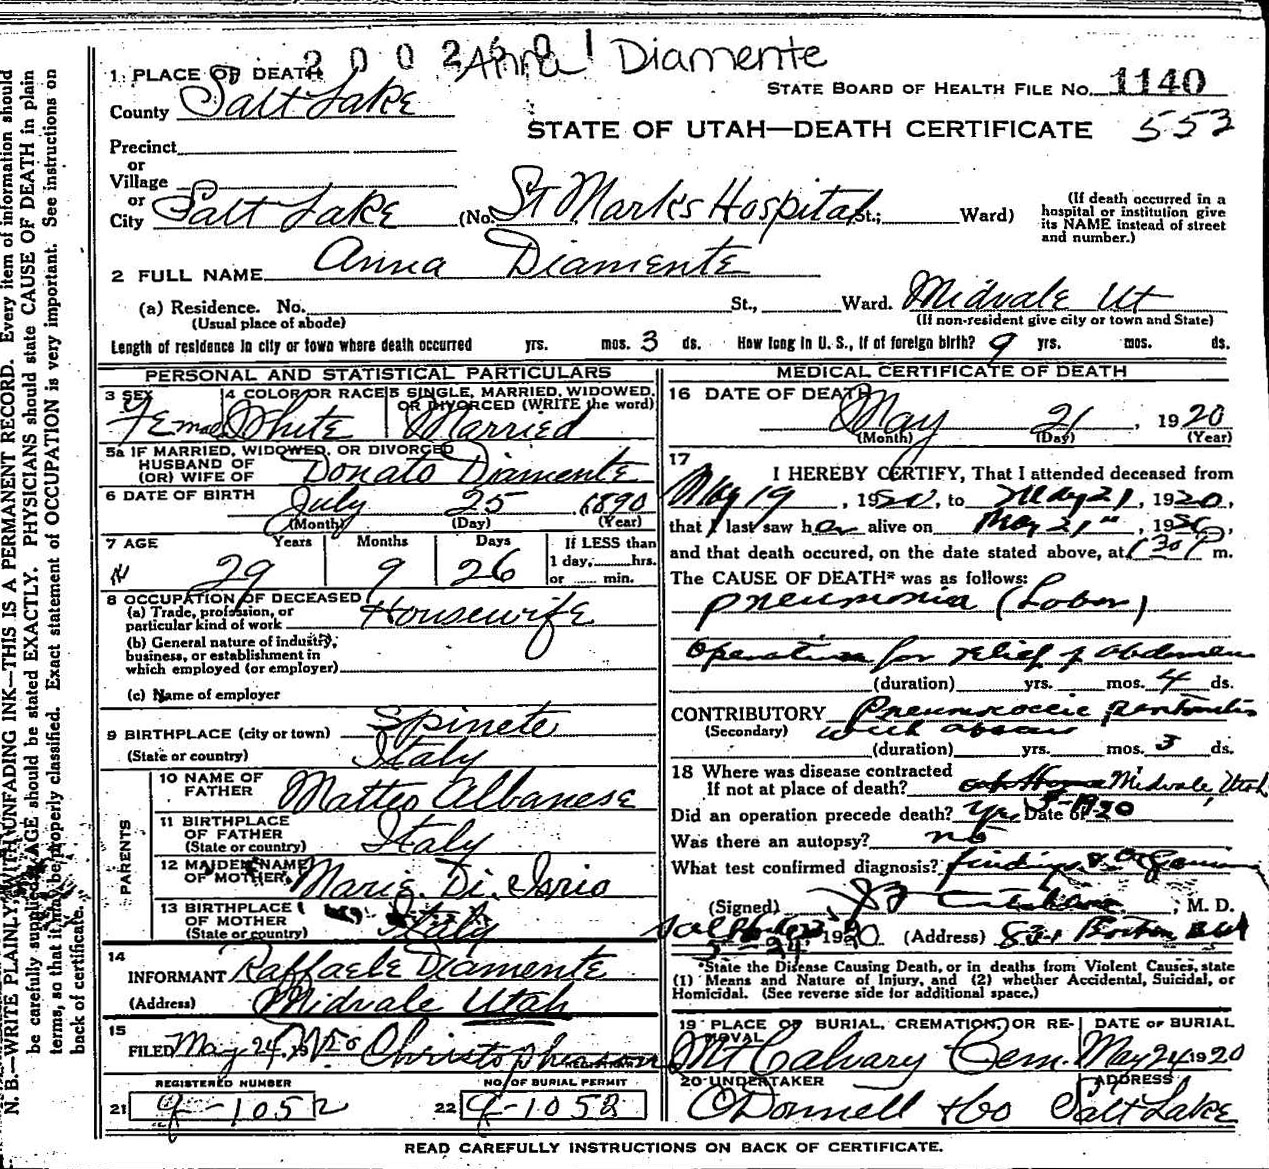 2002601
Anna Diamente
1 PLACE OF DEATH
STATE BOARD OF HEALTH FILE No. 1140
County Salt Lake
STATE OF UTAH—DEATH CERTIFICATE 553
Precinct
or
Village
or
City Salt Lake (No. St Marks Hospital St.; Ward) (If death occurred in a hospital or institution give its NAME instead of street and number.)
2 FULL NAME Anna Diamente
(a) Residence. No. St., Ward. Midvale Ut
(Usual place of abode) (If non-resident give city or town and State)
Length of residence in city or town where death occurred yrs. mos. 3 ds. How long in U. S., if of foreign birth? 9 yrs. mos. ds.
PERSONAL AND STATISTICAL PARTICULARS
3 SEX 4 COLOR OR RACE 5 SINGLE, MARRIED, WIDOWED, OR DIVORCED (WRITE the word)
Female White Married
5a IF MARRIED, WIDOWED, OR DIVORCED
HUSBAND OF
(OR) WIFE OF Donato Diamente
6 DATE OF BIRTH July 25 1890
(Month) (Day) (Year)
7 AGE Years Months Days If LESS than
29 9 26 1 day, hrs.
or min.
8 OCCUPATION OF DECEASED
(a) Trade, profession, or
particular kind of work Housewife
(b) General nature of industry,
business, or establishment in
which employed (or employer)
(c) Name of employer
9 BIRTHPLACE (city or town) Spinete
(State or country) Italy
PARENTS
10 NAME OF
FATHER Matteo Albanese
11 BIRTHPLACE
OF FATHER
(State or country) Italy
12 MAIDEN NAME
OF MOTHER Marie Di Iorio
13 BIRTHPLACE
OF MOTHER
(State or country) Italy
14
INFORMANT Raffaele Diamente
(Address) Midvale Utah
15
FILED May 24, 1920 Christophenson
REGISTRAR
REGISTERED NUMBER NO. OF BURIAL PERMIT
21 9-1052 22 9-1052
MEDICAL CERTIFICATE OF DEATH
16 DATE OF DEATH
May 21, 1920
(Month) (Day) (Year)
17
I HEREBY CERTIFY, That I attended deceased from
May 19, 1920, to May 21, 1920,
that I last saw her alive on May 21", 1920,
and that death occured, on the date stated above, at 1 30 P m.
The CAUSE OF DEATH* was as follows:
Pneumonia (Lobar)
Operation for relief of abdomen
(duration) yrs. mos. 4 ds.
CONTRIBUTORY Pneumococcic peritonitis
(Secondary) with abscess
(duration) yrs. mos. 3 ds.
18 Where was disease contracted
If not at place of death? Midvale, Utah
Did an operation precede death? Yes Date of 5-19-20
Was there an autopsy? no
What test confirmed diagnosis? findings & organism
(Signed) , M. D.
5-24, 1920 (Address) 831 Boston Bld
*State the Disease Causing Death, or in deaths from Violent Causes, state
(1) Means and Nature of Injury, and (2) whether Accidental, Suicidal, or
Homicidal. (See reverse side for additional space.)
19 PLACE OF BURIAL, CREMATION, OR REMOVAL DATE OF BURIAL
Mt Calvary Cem. May 24 1920
20 UNDERTAKER ADDRESS
O'Donnell & Co Salt Lake
READ CAREFULLY INSTRUCTIONS ON BACK OF CERTIFICATE.
N. B.—WRITE PLAINLY, WITH UNFADING INK—THIS IS A PERMANENT RECORD. Every item of information should
be carefully supplied. AGE should be stated EXACTLY. PHYSICIANS should state CAUSE OF DEATH in plain
terms, so that it may be properly classified. Exact statement of OCCUPATION is very important. See instructions on
back of certificate.